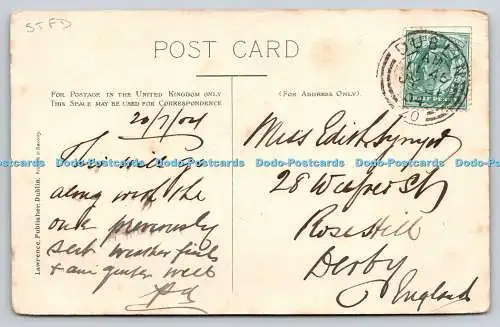 STFD
POST CARD
FOR POSTAGE IN THE UNITED KINGDOM ONLY
THIS SPACE MAY BE USED FOR CORRESPONDENCE
(FOR ADDRESS ONLY).
20/7/04
This will go
along with the
one previously
sent weather fine
& am quite well
Miss Edith
28 St
Rose Hill
Derby
England
Lawrence, Publisher, Dublin.
Dodo-Postcards Dodo-Postcards Dodo-Postcards Dodo-Postcards Dodo-Postcards